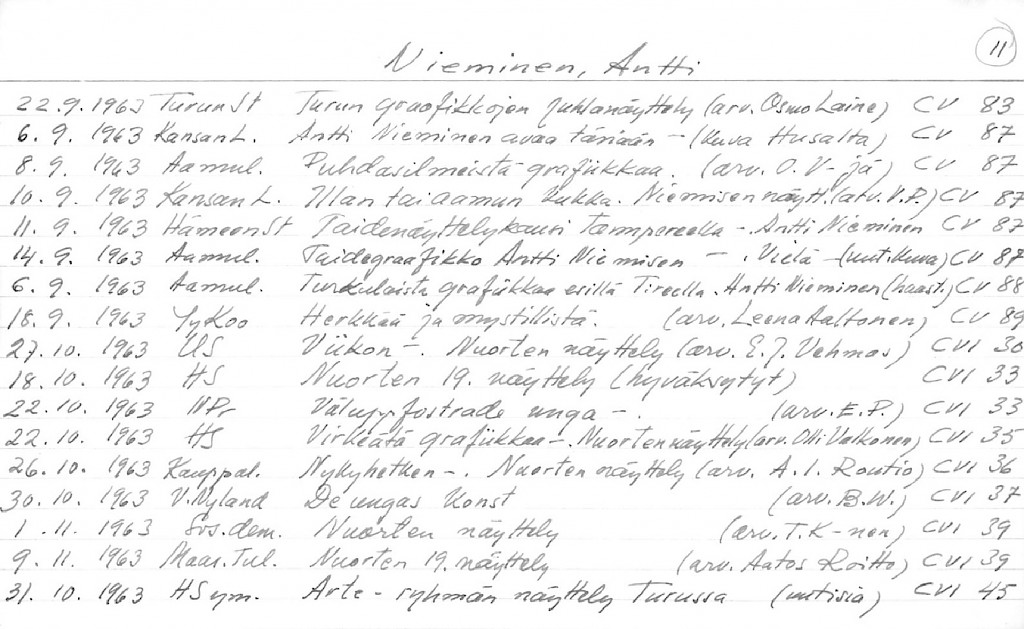 11
Nieminen, Antti
22.9.1963 TurunSt Turun graafikkojen juhlanäyttely (arv. Osmo Laine) CV 83
6. 9. 1963 KansanL. Antti Nieminen avaa tänään - (kuva Husalta) CV 87
8. 9. 1963 Aamul. Puhdasilmeistä grafiikkaa. (arv. O. V-jä) CV 87
10. 9. 1963 KansanL. Illan tai aamun kukka. Niemisen näytt. (arv. V.P.) CV 87
11. 9. 1963 HämeenSt Taidenäyttelykausi Tampereella - Antti Nieminen CV 87
14. 9. 1963 Aamul. Taidegraafikko Antti Niemisen - . Vielä - (uut. kuva) CV 87
6. 9. 1963 Aamul. Turkulaista grafiikkaa esillä Tireella. Antti Nieminen (haast.) CV 88
18. 9. 1963 JyKoo Herkkää ja mystillistä. (arv. Leena Aaltonen) CV 89
27. 10. 1963 US Viikon -. Nuorten näyttely (arv. E. J. Vehmas) CVI 30
18. 10. 1963 HS Nuorten 19. näyttely (hyväksytyt) CVI 33
22. 10. 1963 NPr Väluppfostrade unga - . (arv. E.P.) CVI 33
22. 10. 1963 HS Virkeätä grafiikkaa -. Nuorten näyttely (arv. Olli Valkonen) CVI 35
26. 10. 1963 Kauppal. Nykyhetken -. Nuorten näyttely (arv. A. I. Routio) CVI 36
30. 10. 1963 V. Nyland De ungas konst (arv. B.W.) CVI 37
1. 11. 1963 Sos.dem. Nuorten näyttely (arv. T. K-nen) CVI 39
9. 11. 1963 Maas.Tul. Nuorten 19. näyttely (arv. Aatos Roitto) CVI 39
31. 10. 1963 HSym. Arte - ryhmän näyttely Turussa (uutisia) CVI 45